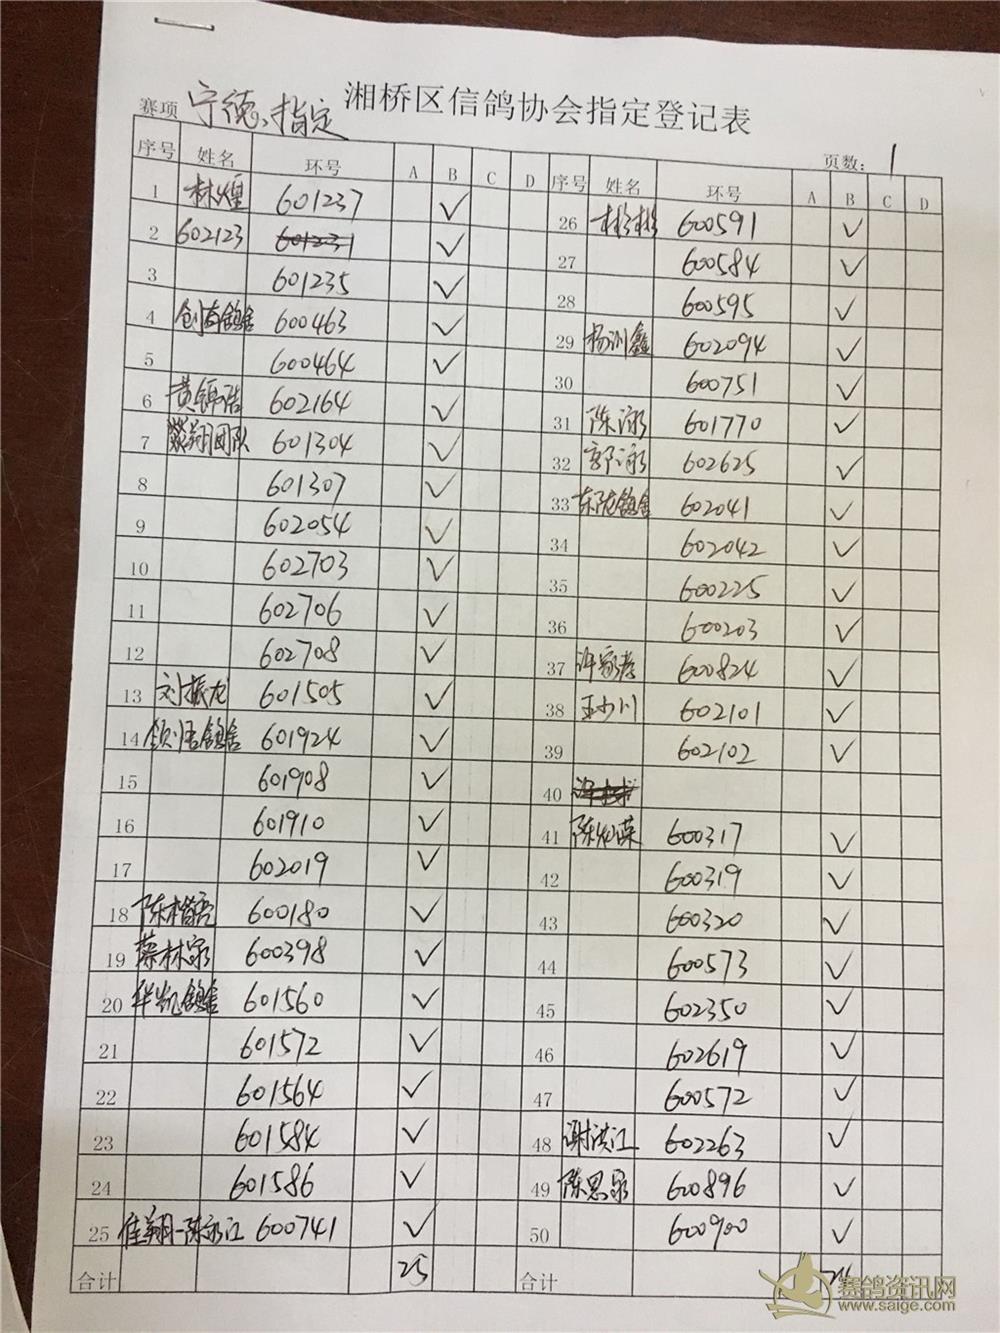 湘桥区信鸽协会指定登记表
赛项 宁德、指定
页数: 1
序号 姓名 环号 A B C D 序号 姓名 环号 A B C D
1 林煌 601237 ✓ 26 彬彬 600591 ✓
2 602123 601231 ✓ 27 600584 ✓
3 601235 ✓ 28 600595 ✓
4 创奇鸽舍 600463 ✓ 29 杨训鑫 602094 ✓
5 600464 ✓ 30 600751 ✓
6 黄锦浩 602164 ✓ 31 陈泳 601770 ✓
7 翔团队 601304 ✓ 32 郭泳 602625 ✓
8 601307 ✓ 33 东陇鸽舍 602041 ✓
9 602054 ✓ 34 602042 ✓
10 602703 ✓ 35 600225 ✓
11 602706 ✓ 36 600203 ✓
12 602708 ✓ 37 许家 600824 ✓
13 刘振龙 601505 ✓ 38 王小川 602101 ✓
14 鸽舍 601924 ✓ 39 602102 ✓
15 601908 ✓ 40
16 601910 ✓ 41 陈 600317 ✓
17 602019 ✓ 42 600319 ✓
18 陈楷 600180 ✓ 43 600320 ✓
19 蔡林泉 600398 ✓ 44 600573 ✓
20 华凯鸽舍 601560 ✓ 45 602350 ✓
21 601572 ✓ 46 602619 ✓
22 601564 ✓ 47 600572 ✓
23 601584 ✓ 48 谢洪江 602263 ✓
24 601586 ✓ 49 陈思泉 600896 ✓
25 佳翔-陈泳江 600741 ✓ 50 600900 ✓
合计 25 合计 24
赛鸽资讯网
www.saige.com